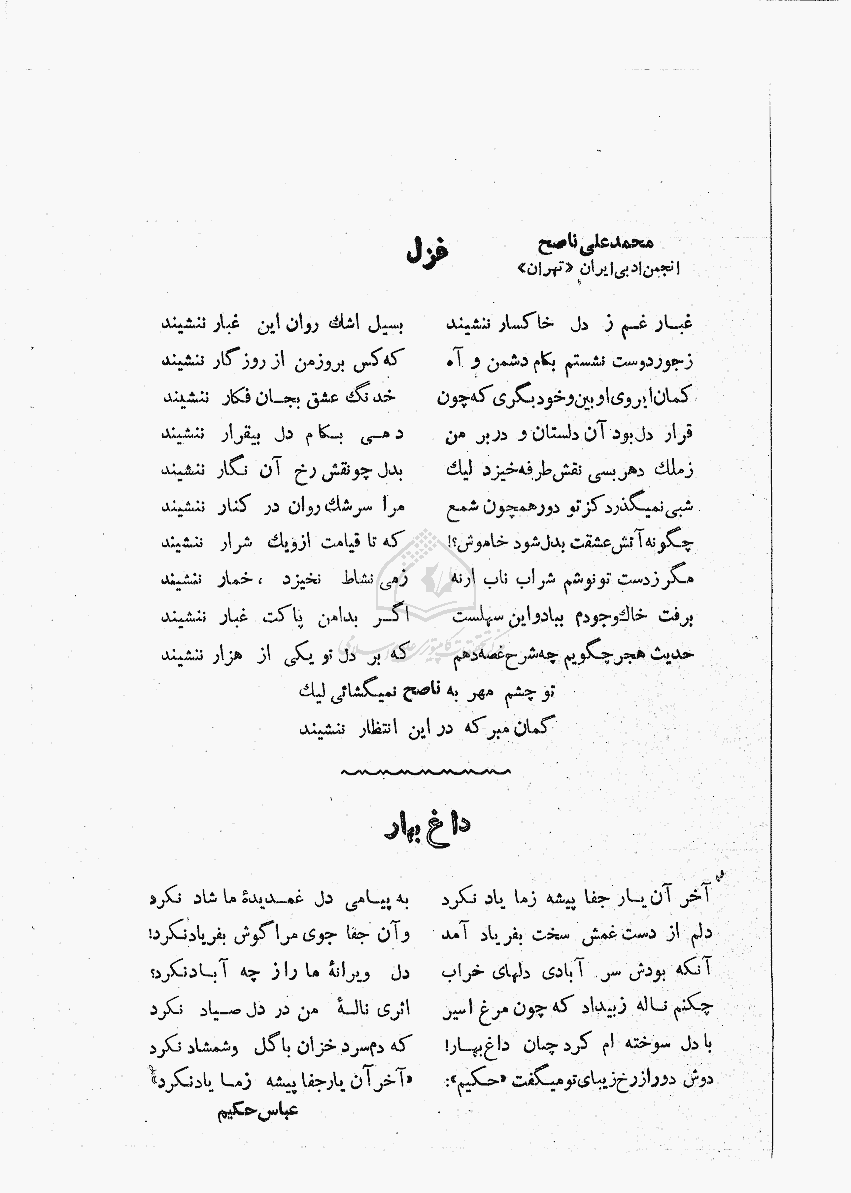 محمدعلی ناصح
انجمن ادبی ایران «تهران»
غزل
غبار غم ز دل خاکسار ننشیند بسیل اشك روان این غبار ننشیند
زجور دوست نشستم بکام دشمن و آه که کس بروز من از روزگار ننشیند
کمان ابروی او بین و خود بگری که چون خدنگ عشق بجان فکار ننشیند
قرار دل بود آن دلستان و در بر من دمی بکام دل بیقرار ننشیند
زملك دهر بسی نقش طرفه خیزد لیك بدل چو نقش رخ آن نگار ننشیند
شبی نمیگذرد کز تو دور همچون شمع مرا سرشك روان در کنار ننشیند
چگونه آتش عشقت بدل شود خاموش؟! که تا قیامت ازو یك شرار ننشیند
مگر زدست تو نوشم شراب ناب ارنه زمی نشاط نخیزد ، خمار ننشیند
برفت خاك وجودم بباد و این سهلست اگر بدامن پاکت غبار ننشیند
حدیث هجر چگویم چه شرح غصه دهم که بر دل تو یکی از هزار ننشیند
تو چشم مهر به ناصح نمیگشائی لیك
گمان مبر که در این انتظار ننشیند
داغ بهار
آخر آن یار جفا پیشه زما یاد نکرد به پیامی دل غمدیدهٔ ما شاد نکرد
دلم از دست غمش سخت بفریاد آمد وآن جفا جوی مرا گوش بفریاد نکرد!
آنکه بودش سر آبادی دلهای خراب دل ویرانهٔ ما را ز چه آباد نکرد؟
چکنم ناله زبیداد که چون مرغ اسیر اثری نالهٔ من در دل صیاد نکرد
با دل سوخته ام کرد چنان داغ بهار! که دم سرد خزان با گل وشمشاد نکرد
دوش دور از رخ زیبای تو میگفت «حکیم»: «آخر آن یار جفا پیشه زما یاد نکرد»
عباس حکیم